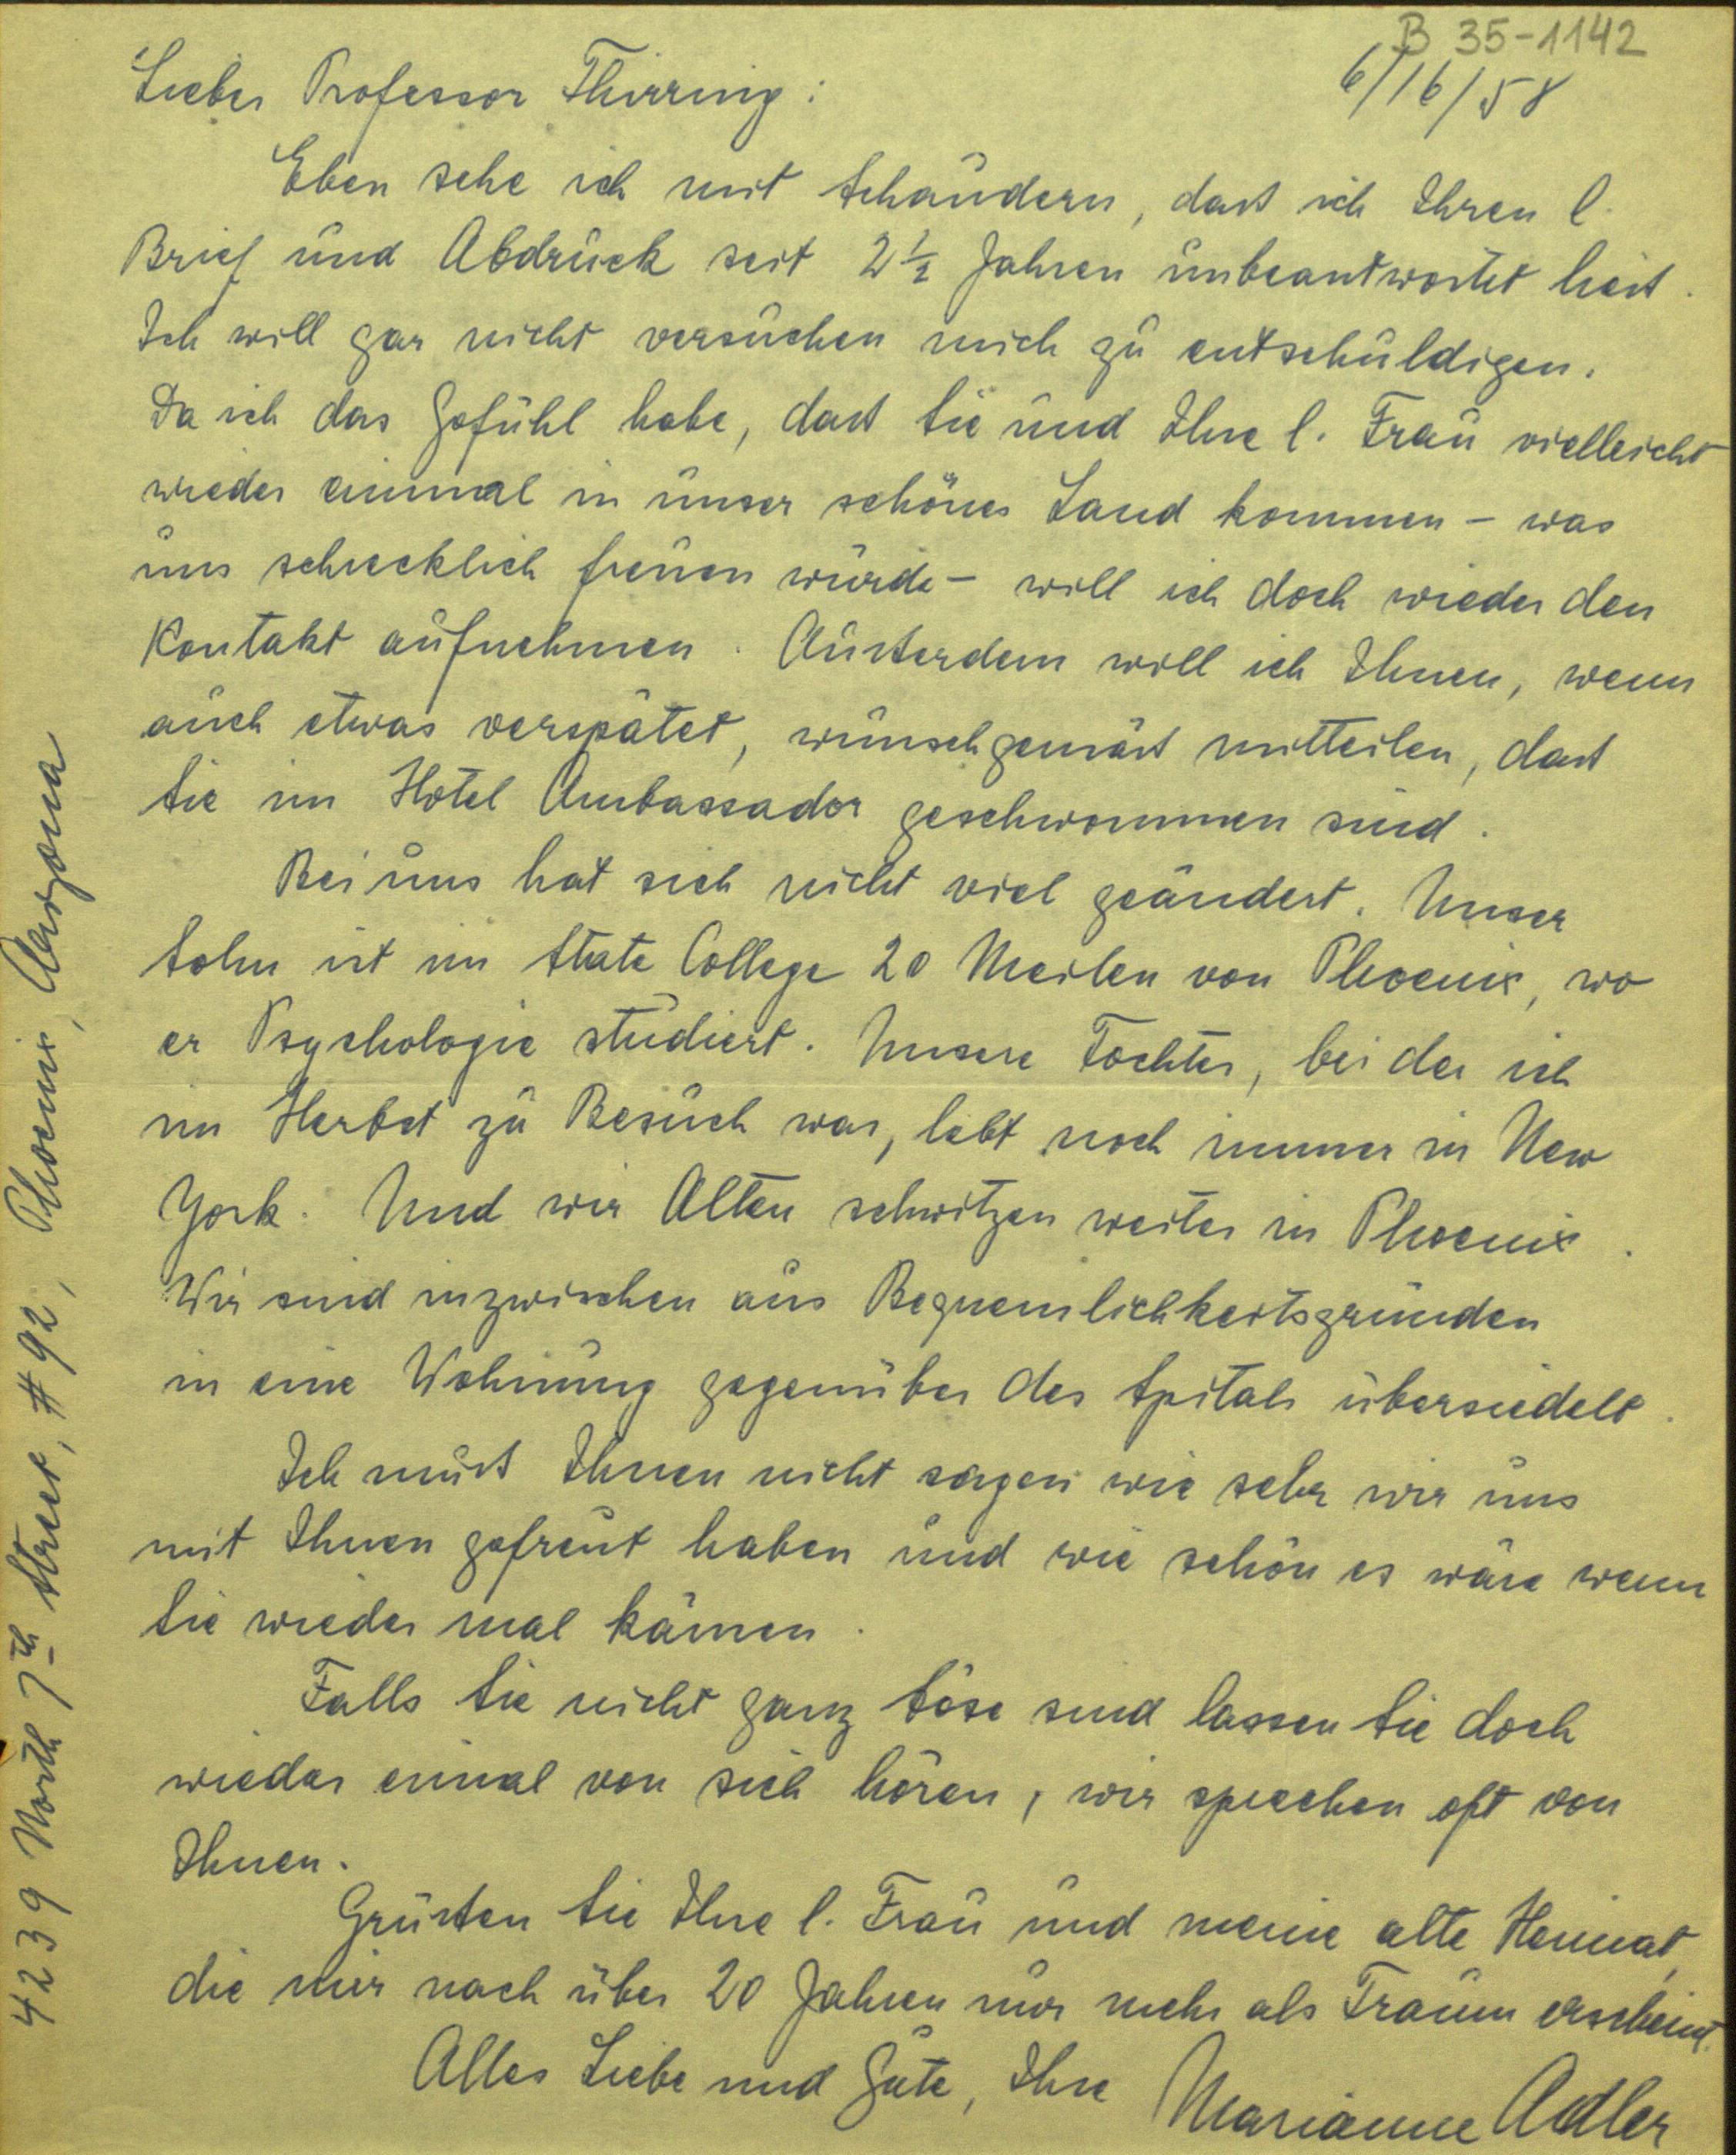 B 35-1142
6/16/58
Lieber Professor Thirring:
Eben sehe ich mit Schaudern, dass ich Ihren l.
Brief und Abdruck seit 2½ Jahren unbeantwortet liess.
Ich will gar nicht versuchen mich zu entschuldigen.
Da ich das Gefühl habe, dass Sie und Ihre l. Frau vielleicht
wieder einmal in unser schönes Land kommen – was
uns schrecklich freuen würde – will ich doch wieder den
Kontakt aufnehmen. Ausserdem will ich Ihnen, wenn
auch etwas verspätet, wunschgemäss mitteilen, dass
Sie im Hotel Ambassador geschwommen sind.
Bei uns hat sich nicht viel geändert. Unser
Sohn ist im State College 20 Meilen von Phoenix, wo
er Psychologie studiert. Unsere Tochter, bei der ich
im Herbst zu Besuch war, lebt noch immer in New
York. Und wir Alten schwitzen weiter in Phoenix.
Wir sind inzwischen aus Bequemlichkeitsgründen
in eine Wohnung gegenüber des Spitals übersiedelt.
Ich muss Ihnen nicht sagen wie sehr wir uns
mit Ihnen gefreut haben und wie schön es wäre wenn
Sie wieder mal kämen.
Falls Sie nicht ganz böse sind lassen Sie doch
wieder einmal von sich hören, wir sprechen oft von
Ihnen.
Grüssen Sie Ihre l. Frau und meine alte Heimat,
die mir nach über 20 Jahren nur mehr als Traum erscheint.
Alles Liebe und Gute, Ihre Marianne Adler
4239 North 7th Street, #92, Phoenix, Arizona